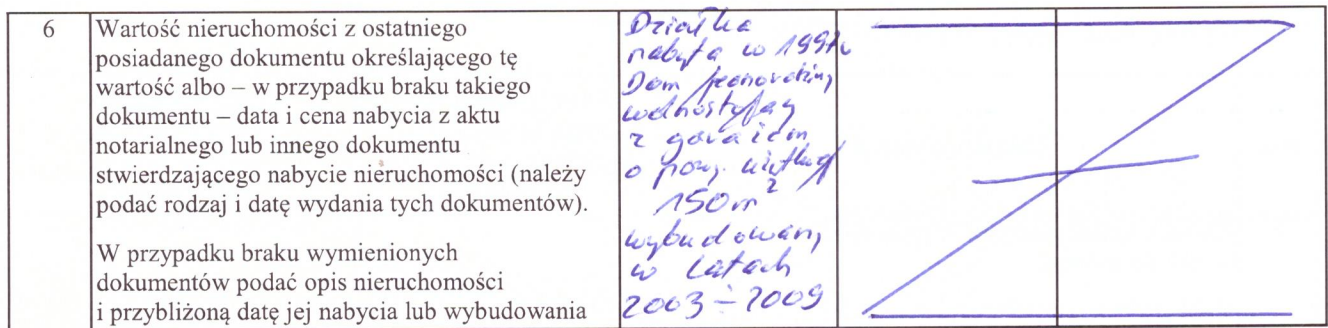 6
Wartość nieruchomości z ostatniego
posiadanego dokumentu określającego tę
wartość albo – w przypadku braku takiego
dokumentu – data i cena nabycia z aktu
notarialnego lub innego dokumentu
stwierdzającego nabycie nieruchomości (należy
podać rodzaj i datę wydania tych dokumentów).
W przypadku braku wymienionych
dokumentów podać opis nieruchomości
i przybliżoną datę jej nabycia lub wybudowania
Działka
nabyta w 1997r
Dom jednorodzinny
wolnostojący
z garażem
o pow. użytkowej
150m²
wybudowany
w latach
2003÷2009